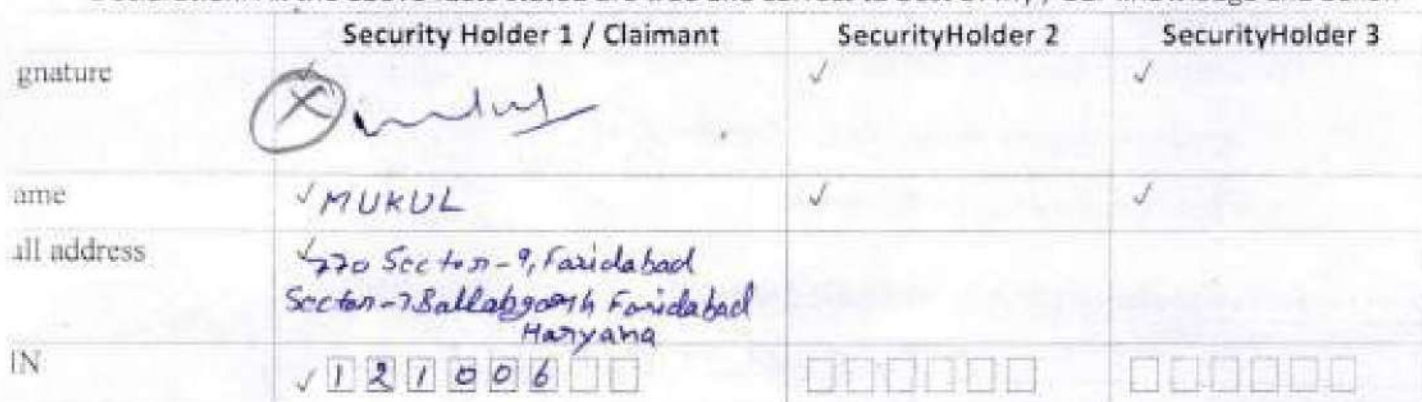 Security Holder 1 / Claimant SecurityHolder 2 SecurityHolder 3
gnature ✓ ✓ ✓
X
ame ✓ MUKUL ✓ ✓
ull address ✓ 770 Sector-9, Faridabad
Sector-7 Ballabgarh Faridabad
Haryana
IN ✓ 1 2 1 0 0 6